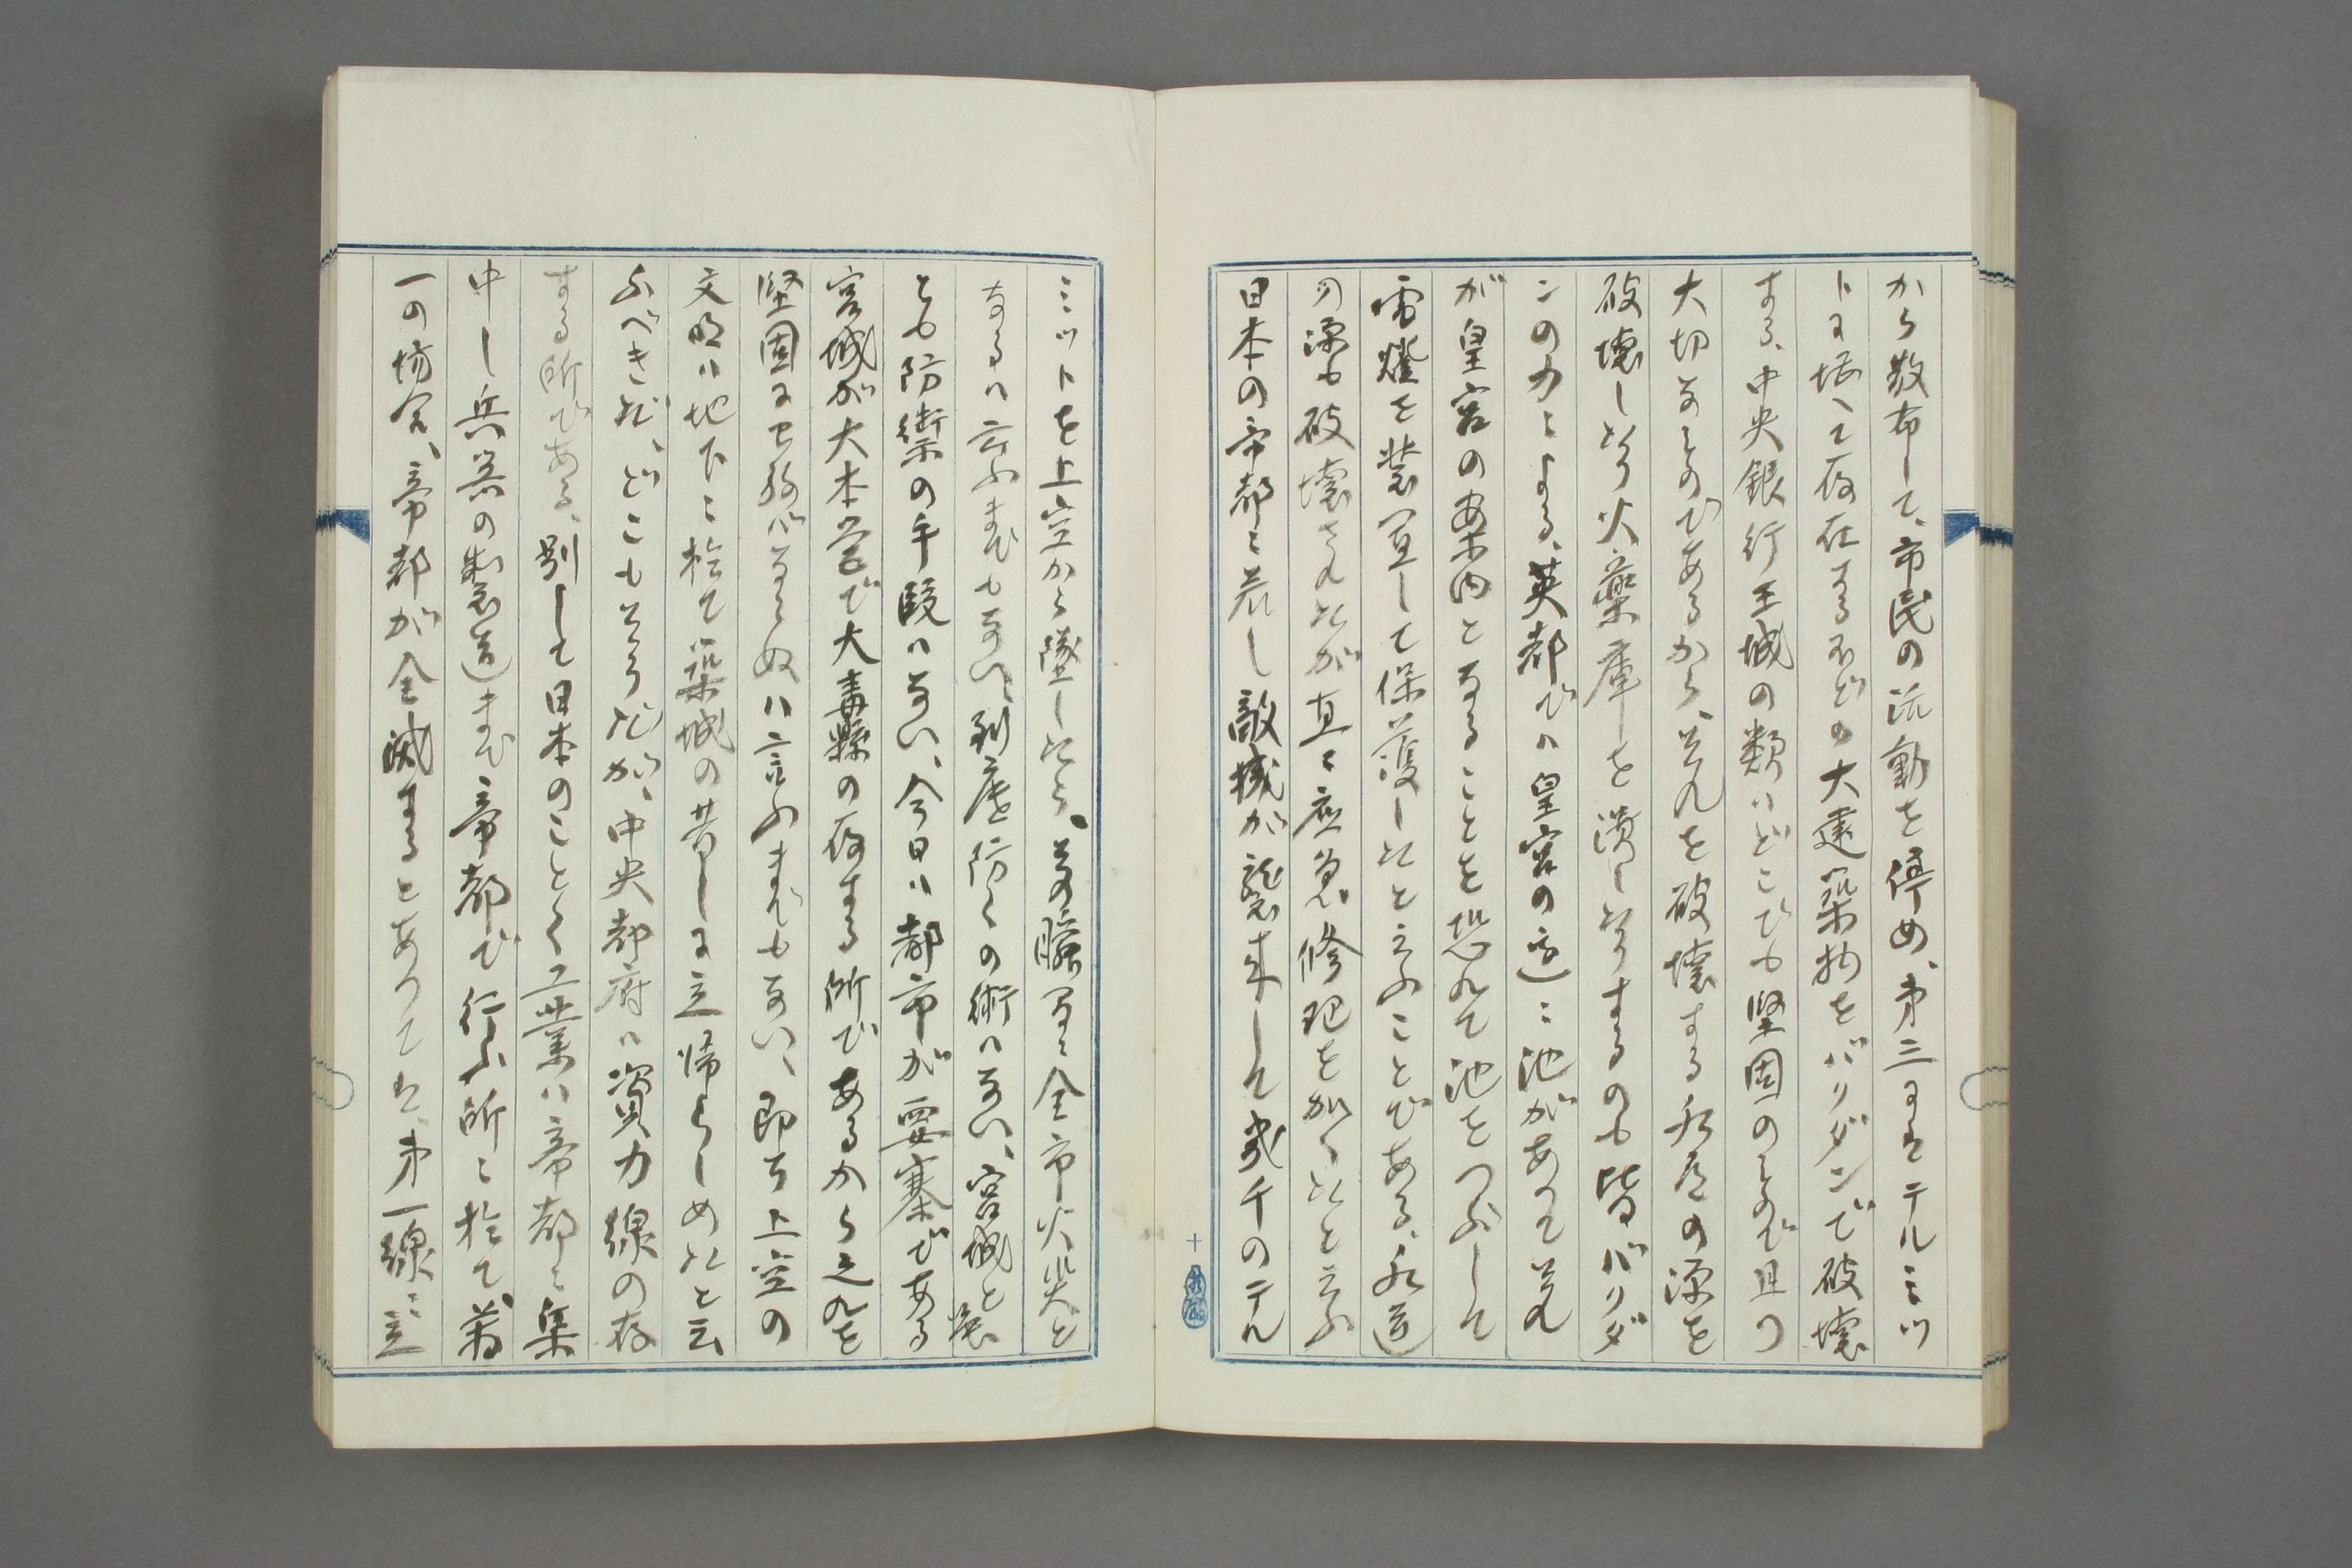 から散布して、市民の活動を停め、第三にはテルミツ
トに堪へて存在するほどの大建築物をバリダンで破壊
する、中央銀行王城の類はどこでも堅固のもので且つ
大切なものであるから、それを破壊する水道の源を
破壊したり火薬庫を潰したりするのも皆バリダ
ンの力による、英都では皇宮の近くに池があつてそれ
が皇宮の案内となることを恐れて池をつぶして
電燈を装置して保護したと云ふことである、水道
の源も破壊されたが直に応急修理を加へたと云ふ
日本の帝都に若し敵機が襲来して幾千のテル
ミツトを上空から墜したら、その瞬間に全市火災と
なるは言ふまでもない、到底防ぐの術はない、宮城と雖
とも防禦の手段はない、今日は都市が要塞である
宮城が大本営で大毒縣の存する所であるから之れを
堅固にせねばならぬは言ふまでもない、即ち上空の
文明は地下に於て築城の昔しに立帰らしめたと云
ふべきだ、どこもそうだが、中央都府は資力線の存
する所である、別して日本のことく工業は帝都に集
中し兵器の製造まで帝都で行ふ所に於て、萬
一の場合、帝都が全滅するとあつては、第一線に立
十